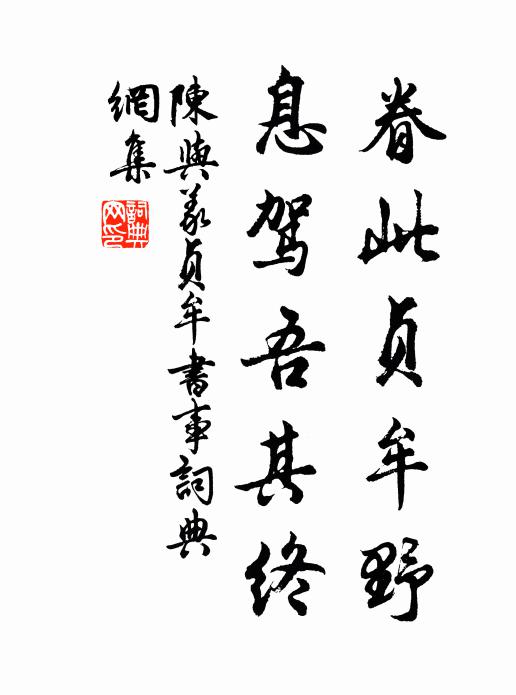 眷此貞牟野
息駕吾其終
陳與義貞牟書事詞典
網集
詞典
网印